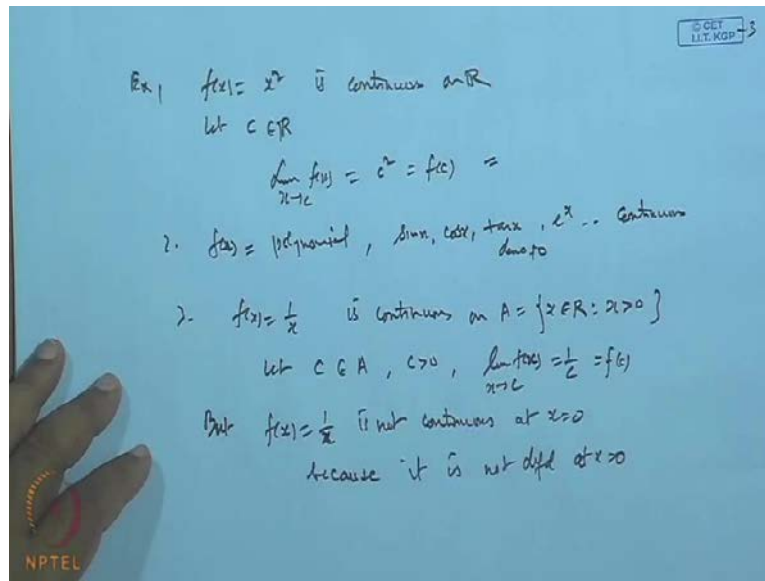 © CET
I.I.T. KGP
-3
Ex 1 f(x) = x² is continuous on R
Let C ∈ R
lim f(x) = c² = f(c) =
x→c
2. f(x) = polynomial, sinx, cosx, tanx, e^x .. continuous
deno ≠0
3. f(x) = 1/x is continuous on A = {x ∈ R : x>0}
Let C ∈ A, C>0, lim f(x) = 1/c = f(c)
x→c
But f(x) = 1/x is not continuous at x=0
because it is not defd at x=0
NPTEL